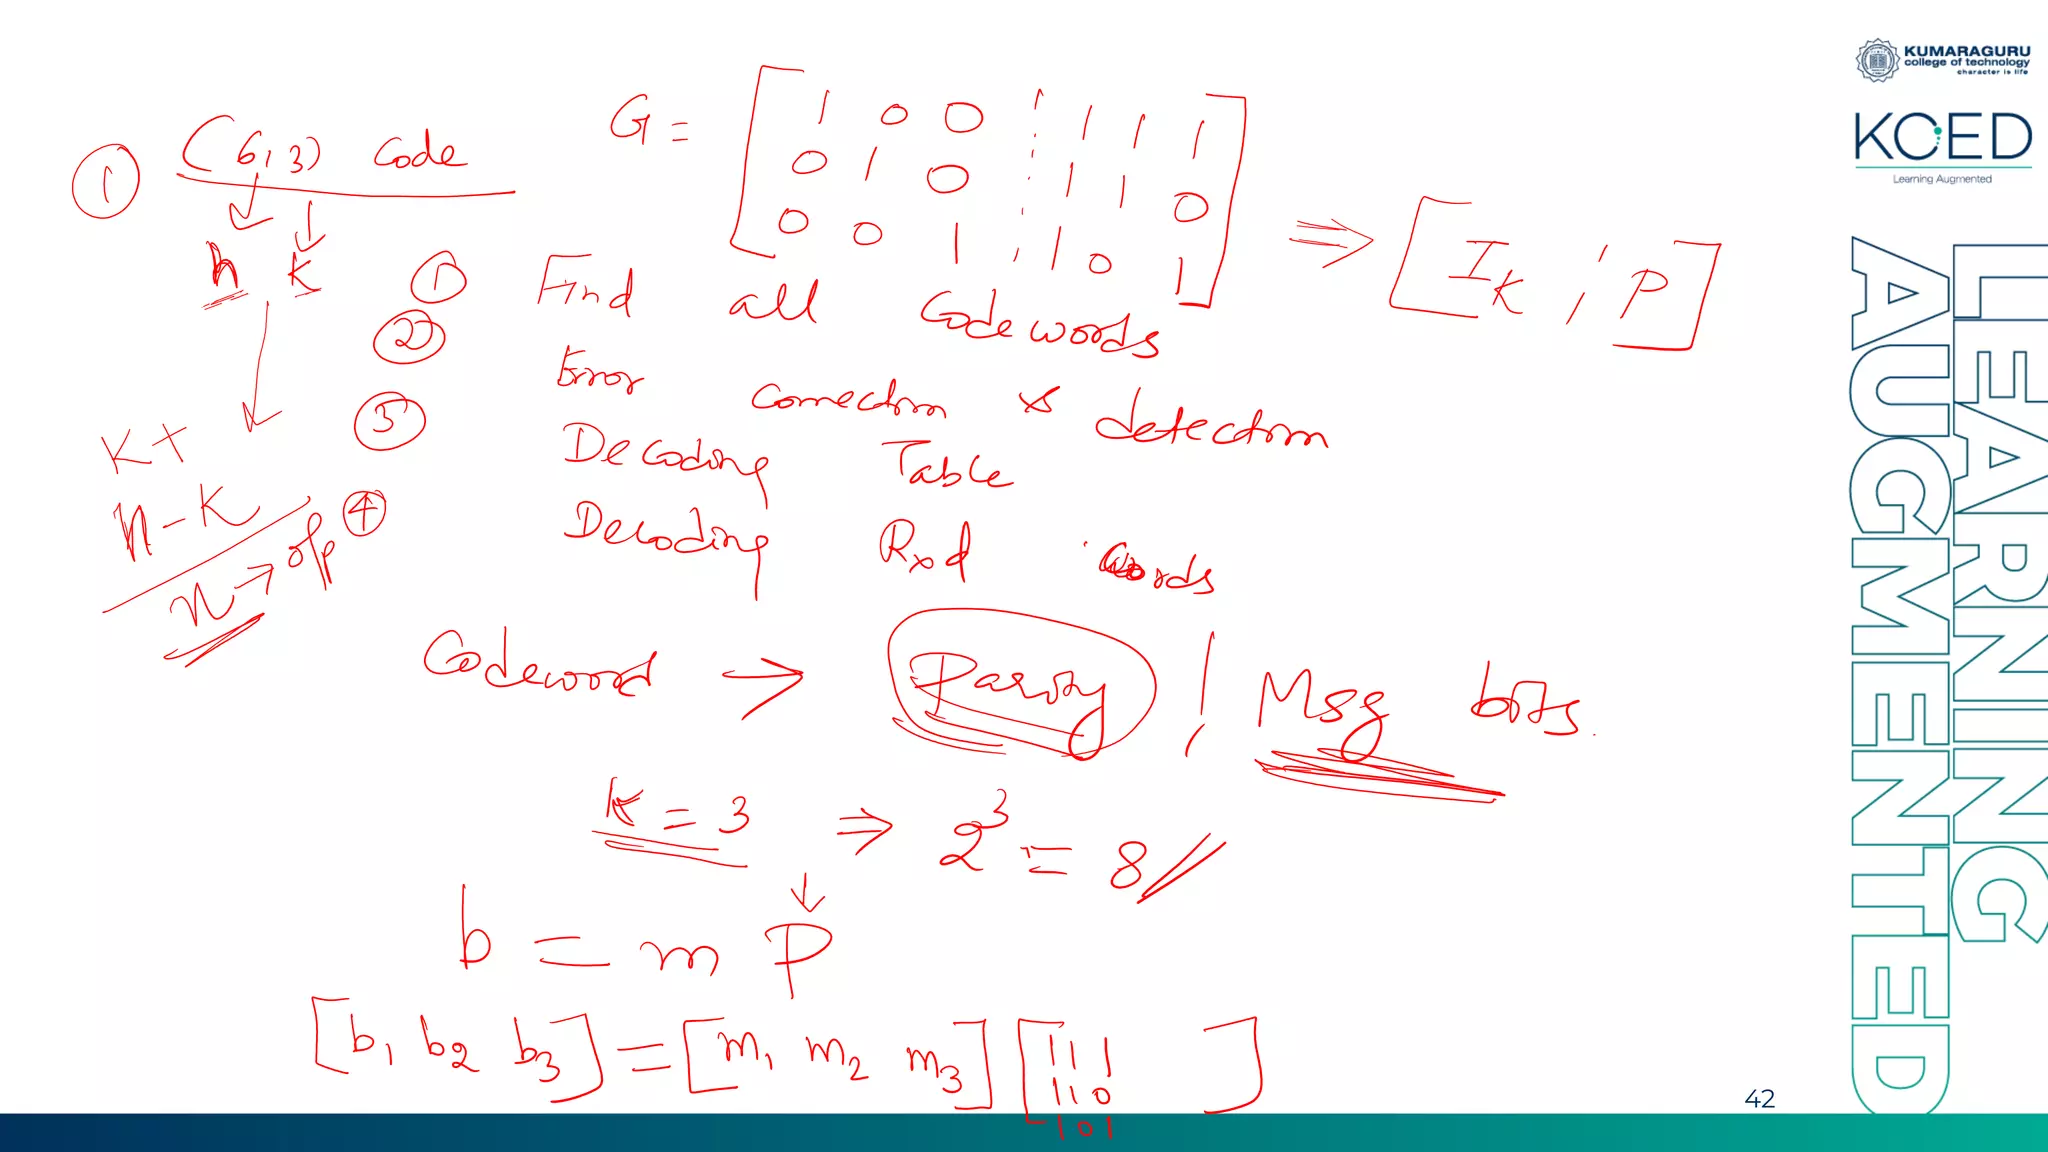 KUMARAGURU
college of technology
character is life
KCED
Learning Augmented
LEARNING
AUGMENTED
① (6,3) code
n k
k+
n-k
n → o/p
G = [ 1 0 0 ¦ 1 1 1
0 1 0 ¦ 1 1 0
0 0 1 ¦ 1 0 1 ] ⇒ [ Ik ¦ P ]
① Find all codewords
② Error correction & detection
③ Decoding Table
④ Decoding Rxd words
Codeword → Parity ¦ Msg bits.
k = 3 ⇒ 2³ = 8
b = m P
[b1 b2 b3] = [m1 m2 m3] [ 1 1 1
1 1 0
1 0 1 ]
42